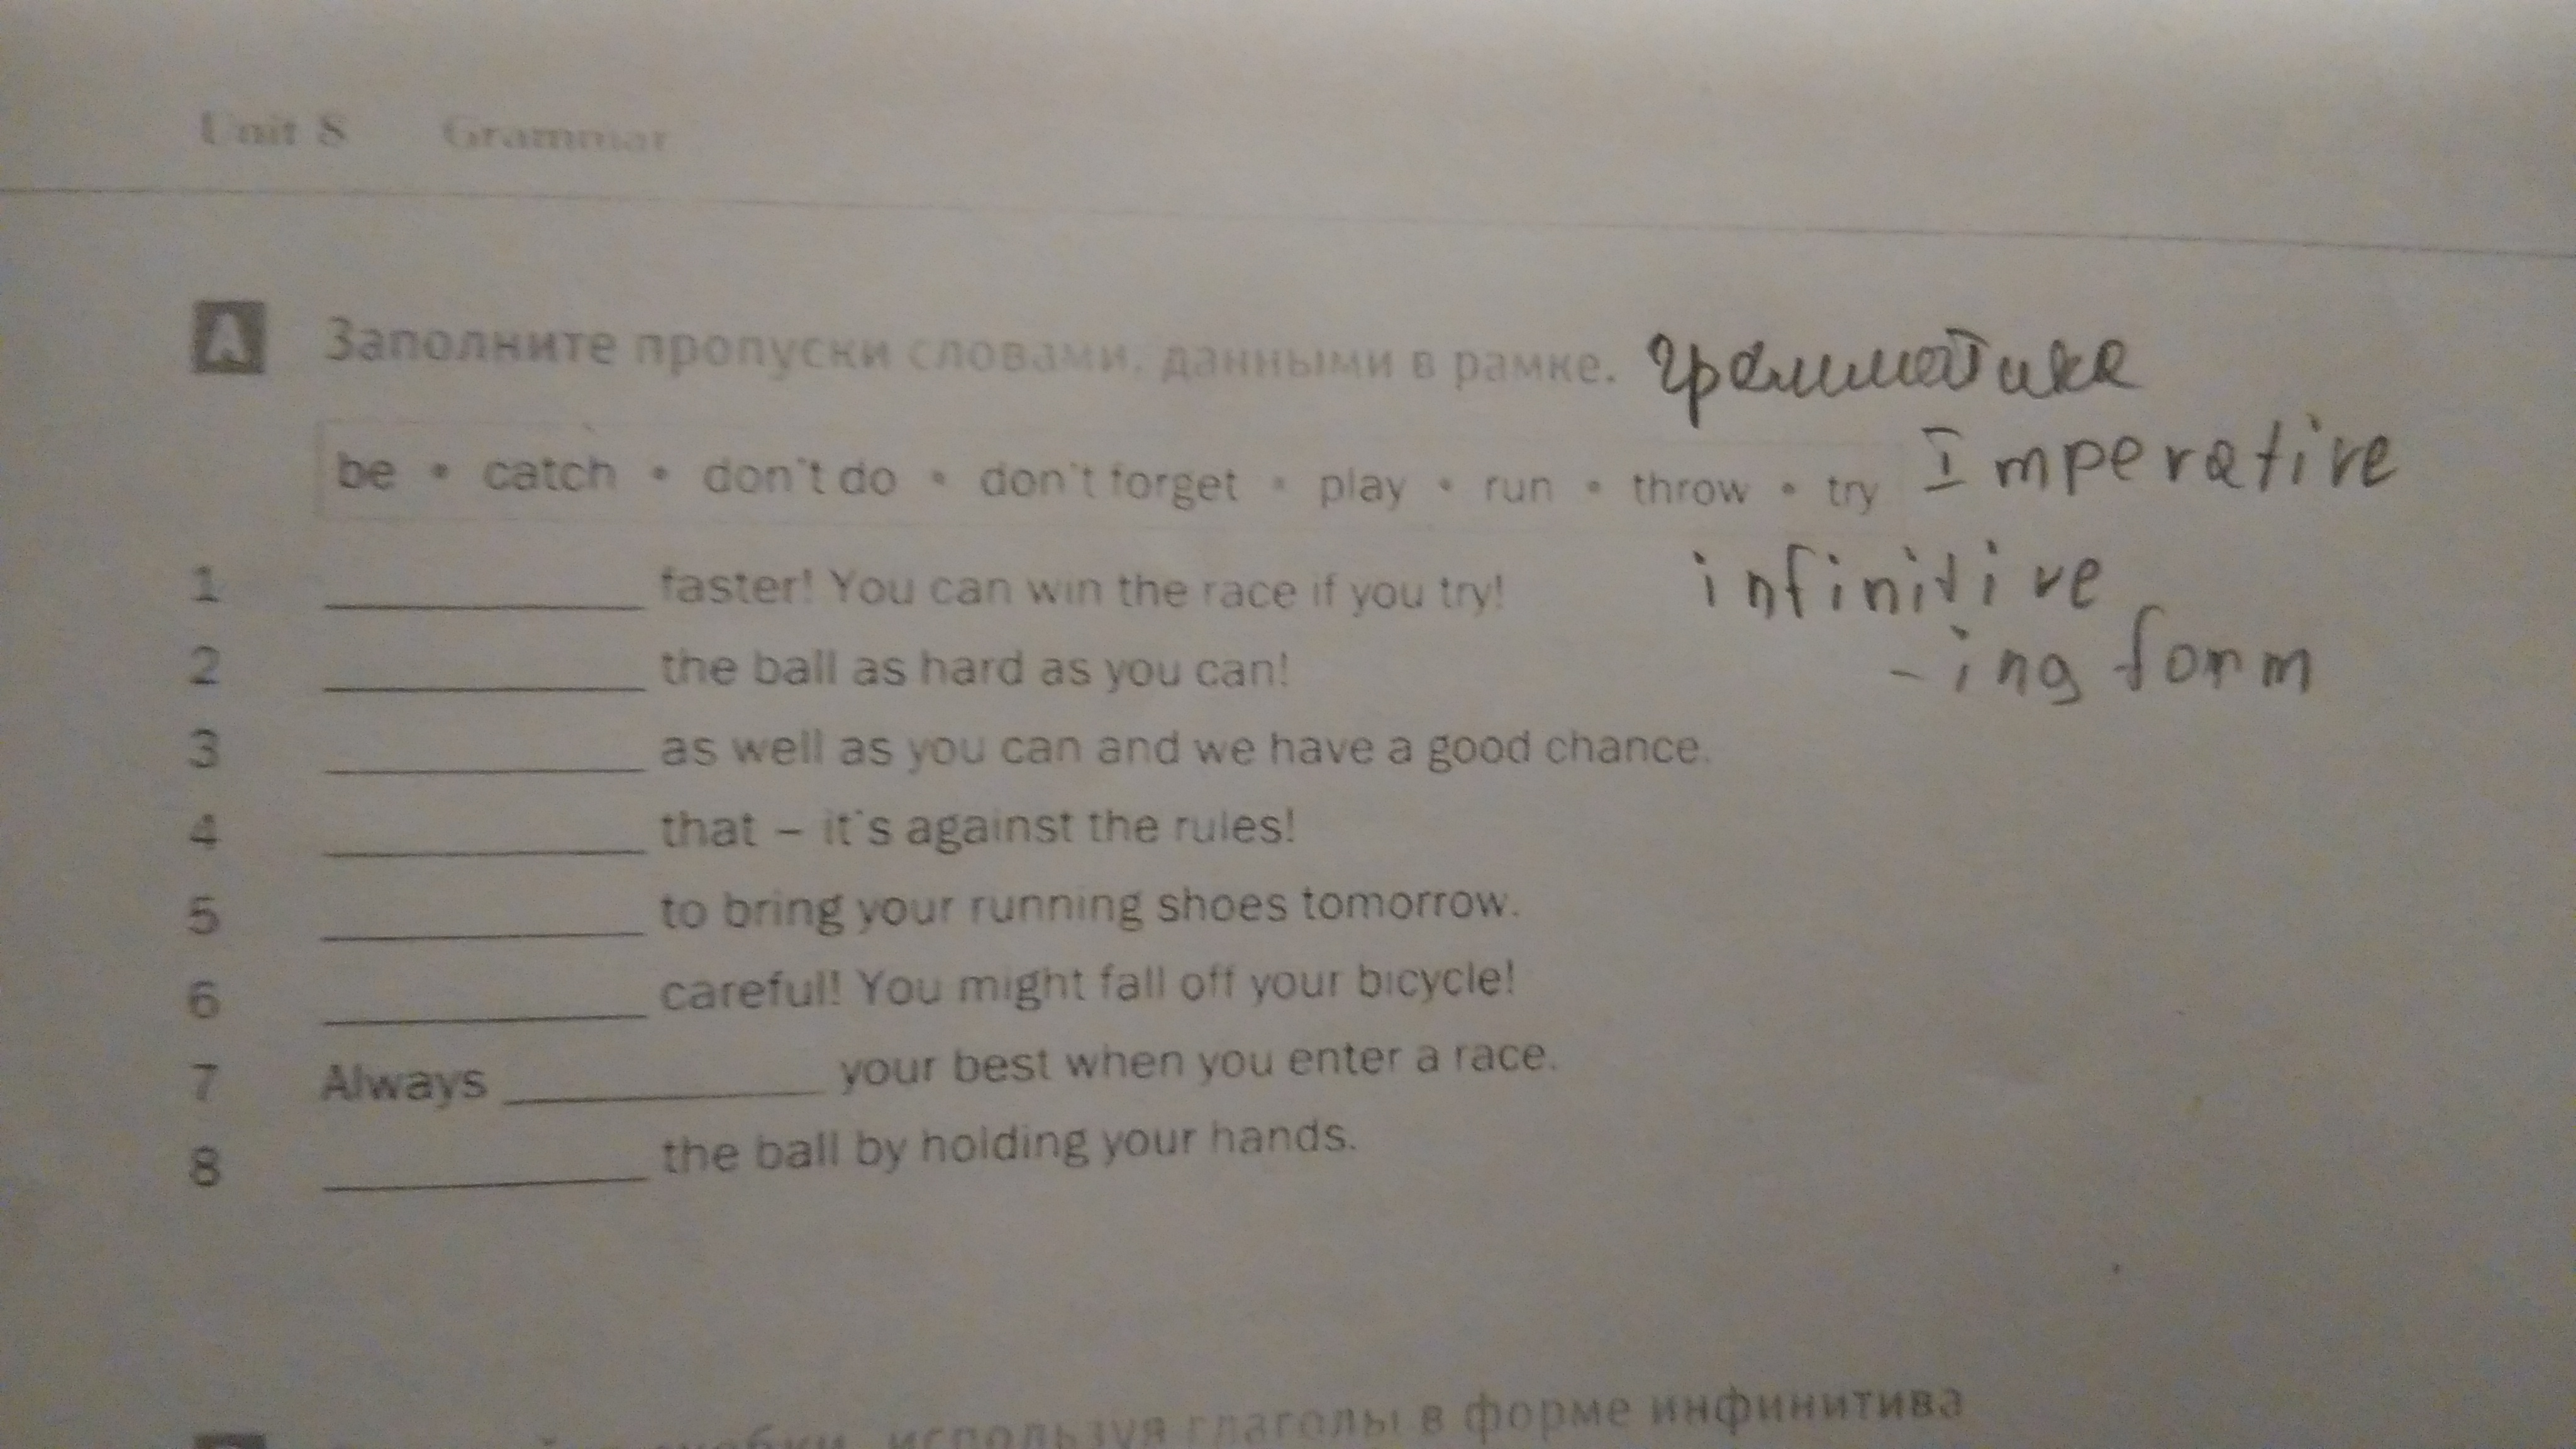 Unit 8 Grammar
A Заполните пропуски словами, данными в рамке. грамматика
be • catch • don't do • don't forget • play • run • throw • try Imperative
infinitive
-ing form
1 __________ faster! You can win the race if you try!
2 __________ the ball as hard as you can!
3 __________ as well as you can and we have a good chance.
4 __________ that – it's against the rules!
5 __________ to bring your running shoes tomorrow.
6 __________ careful! You might fall off your bicycle!
7 Always __________ your best when you enter a race.
8 __________ the ball by holding your hands.
используя глаголы в форме инфинитива